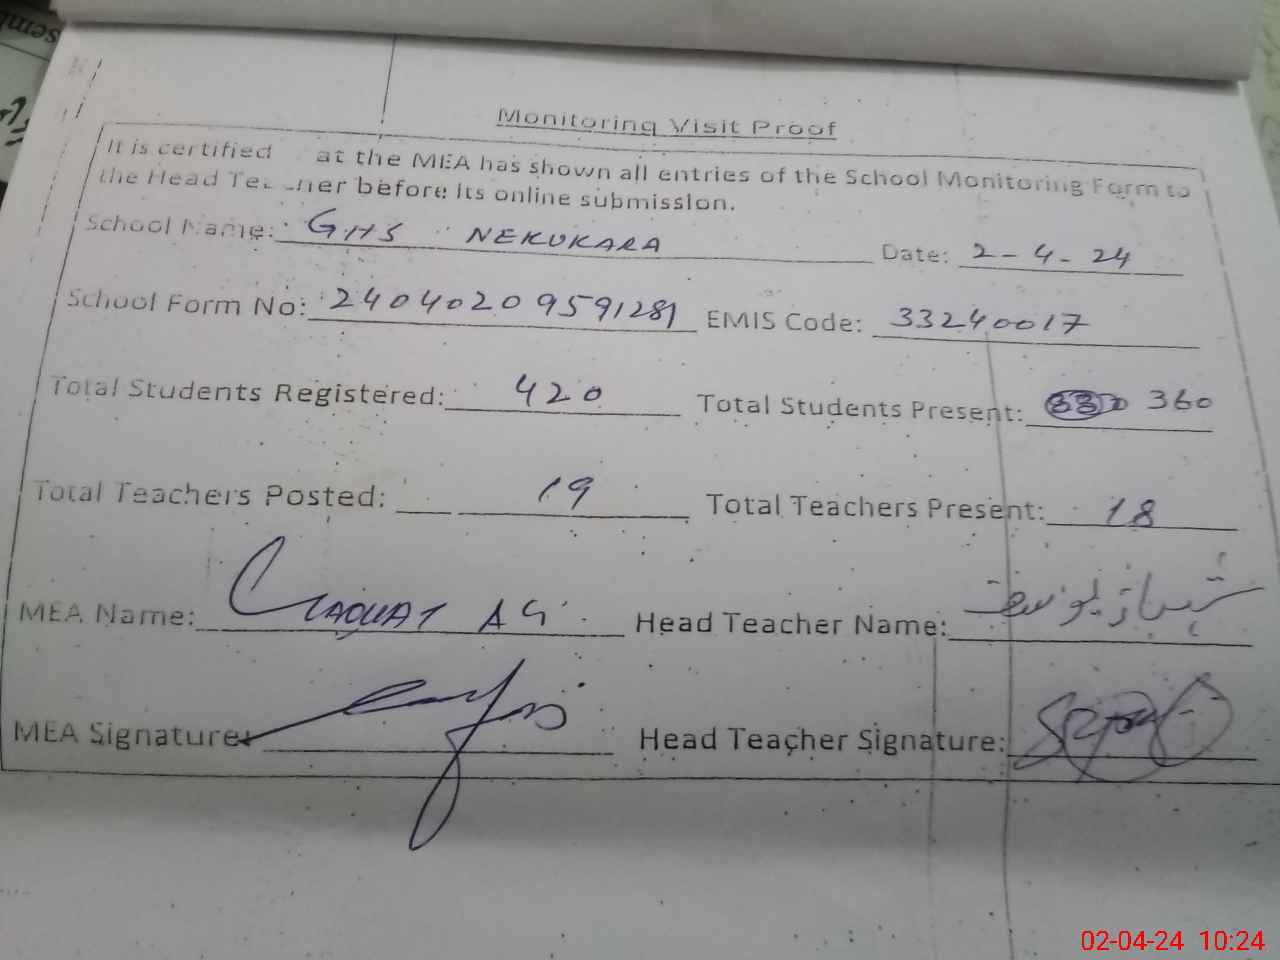 Monitoring Visit Proof
It is certified at the MEA has shown all entries of the School Monitoring Form to
the Head Teacher before its online submission.
School Name: GHS NEKOKARA Date: 2-4-24
School Form No: 24040209591281 EMIS Code: 33240017
Total Students Registered: 420 Total Students Present: 360
Total Teachers Posted: 19 Total Teachers Present: 18
MEA Name: LIAQUAT ALI Head Teacher Name: شہباز یوسف
MEA Signature: Head Teacher Signature:
02-04-24 10:24